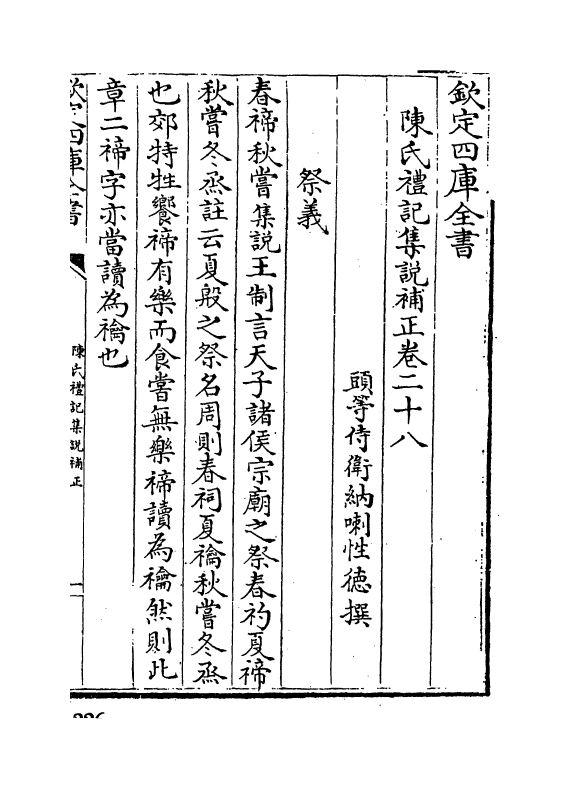 欽定四庫全書
陳氏禮記集說補正卷二十八
頭等侍衛納喇性德撰
祭義
春禘秋嘗集說王制言天子諸侯宗廟之祭春礿夏禘
秋嘗冬烝註云夏殷之祭名周則春祠夏禴秋嘗冬烝
也郊特牲饗禘有樂而食嘗無樂禘讀為禴然則此
章二禘字亦當讀為禴也
欽定四庫全書
陳氏禮記集說補正
一